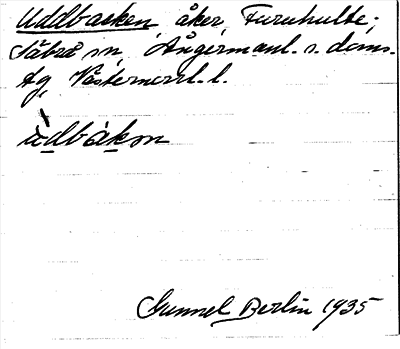 Uddbacken åker, Furuhulte;
Säbrå sn, Ångermanl. s. doms.
tg, Västernorrl. l.
ùdbàkɷn
Gunnel Berlin 1935